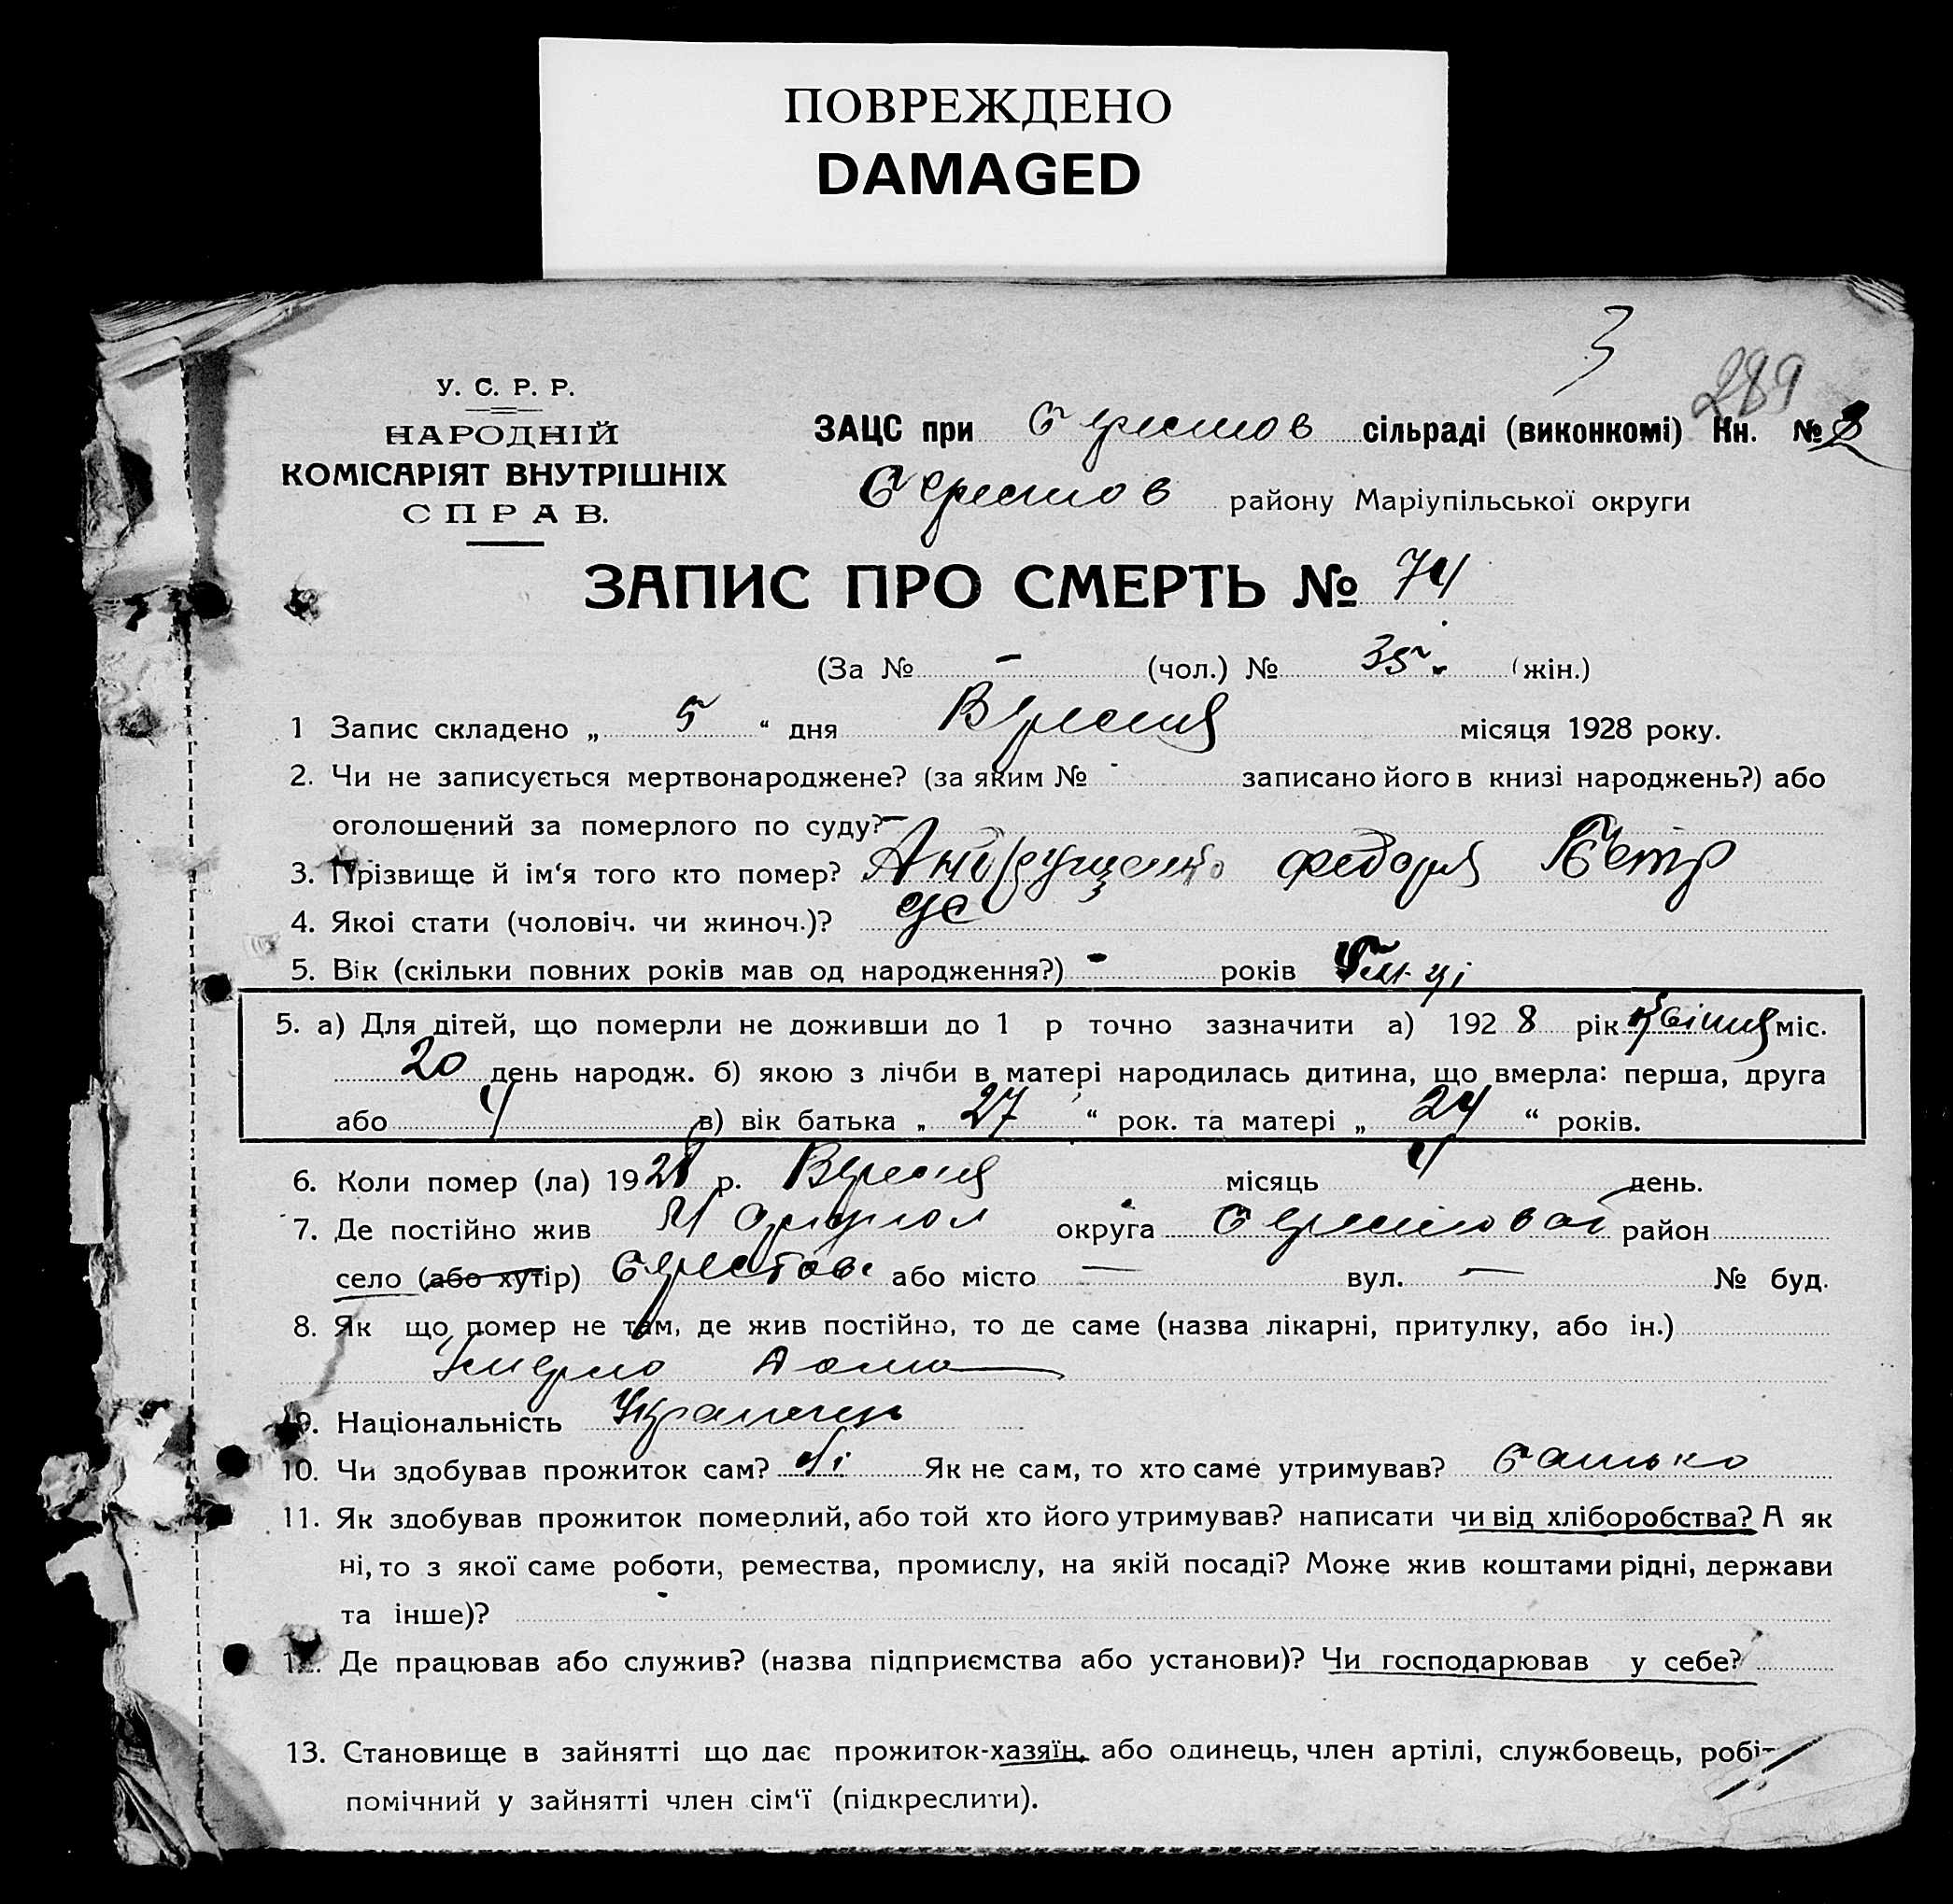 ПОВРЕЖДЕНО
DAMAGED
3
289
У. С. Р. Р.
НАРОДНІЙ
КОМІСАРІЯТ ВНУТРІШНІХ
СПРАВ.
ЗАЦС при Берестов сільраді (виконкомі) Кн. №
Берестов району Маріупільської округи
ЗАПИС ПРО СМЕРТЬ № 74
(За № - (чол.) № 35. (жін.)
1 Запис складено „ 5 “ дня Вересня місяця 1928 року.
2. Чи не записується мертвонароджене? (за яким № - записано його в книзі народжень?) або
оголошений за померлого по суду? -
3. Прізвище й ім'я того кто помер? Андрущенко Федора Петр
4. Якої стати (чоловіч. чи жиноч.)?
5. Вік (скільки повних років мав од народження?) - років
5. а) Для дітей, що померли не доживши до 1 р точно зазначити а) 1928 рік Квітня міс.
20 день народж. б) якою з лічби в матері народилась дитина, що вмерла: перша, друга
або 4 в) вік батька „ 27 “ рок. та матері „ 24 “ років.
6. Коли помер (ла) 1928 р. Вересня місяць 4 день.
7. Де постійно жив Маріупол округа Берестовой район
село (або хутір) Берестове або місто — вул. — № буд.
8. Як що помер не там, де жив постійно, то де саме (назва лікарні, притулку, або ін.)
Умерло дома
9. Національність Українець
10. Чи здобував прожиток сам? Ні Як не сам, то хто саме утримував? батько
11. Як здобував прожиток померлий, або той хто його утримував? написати чи від хліборобства? А як
ні, то з якої саме роботи, ремества, промислу, на якій посаді? Може жив коштами рідні, держави
та інше)? -
12. Де працював або служив? (назва підприємства або установи)? Чи господарював у себе?
13. Становище в зайнятті що дає прожиток-хазяїн, або одинець, член артілі, службовець, робіт
помічний у зайнятті член сім'ї (підкреслити).